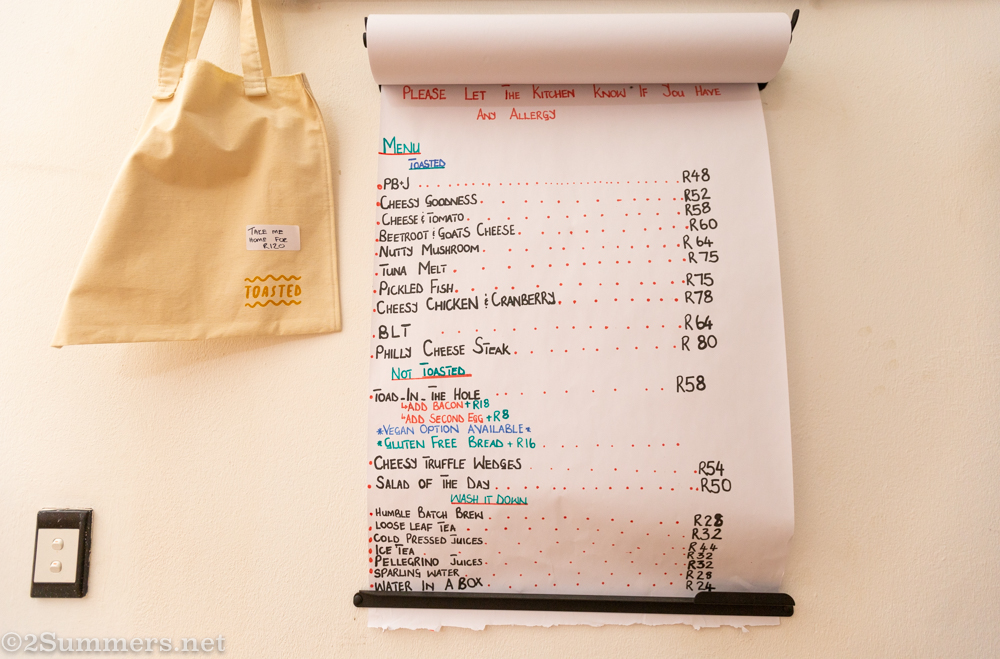 TAKE ME
HOME FOR
R120
TOASTED
PLEASE LET THE KITCHEN KNOW IF YOU HAVE
ANY ALLERGY
MENU
TOASTED
PB+J R48
CHEESY GOODNESS R52
CHEESE & TOMATO R58
BEETROOT & GOATS CHEESE R60
NUTTY MUSHROOM R64
TUNA MELT R75
PICKLED FISH R75
CHEESY CHICKEN & CRANBERRY R78
BLT R64
PHILLY CHEESE STEAK R80
NOT TOASTED
TOAD-IN-THE HOLE R58
↳ADD BACON +R18
↳ADD SECOND EGG +R8
*VEGAN OPTION AVAILABLE*
*GLUTEN FREE BREAD + R16
CHEESY TRUFFLE WEDGES R54
SALAD OF THE DAY R50
WASH IT DOWN
HUMBLE BATCH BREW R28
LOOSE LEAF TEA R32
COLD PRESSED JUICES R44
ICE TEA R32
PELLEGRINO JUICES R32
SPARLING WATER R28
WATER IN A BOX R24
©2Summers.net